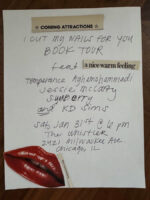 COMING ATTRACTIONS
I CUT MY NAILS FOR YOU
BOOK TOUR
feat a nice warm feeling
Temperance Aghamohammadi
Jessie McCarty
SunBerry
and KD Sims
Sat, Jan 31st @ 6 pm
The Whistler
2421 Milwaukee Ave
Chicago, IL